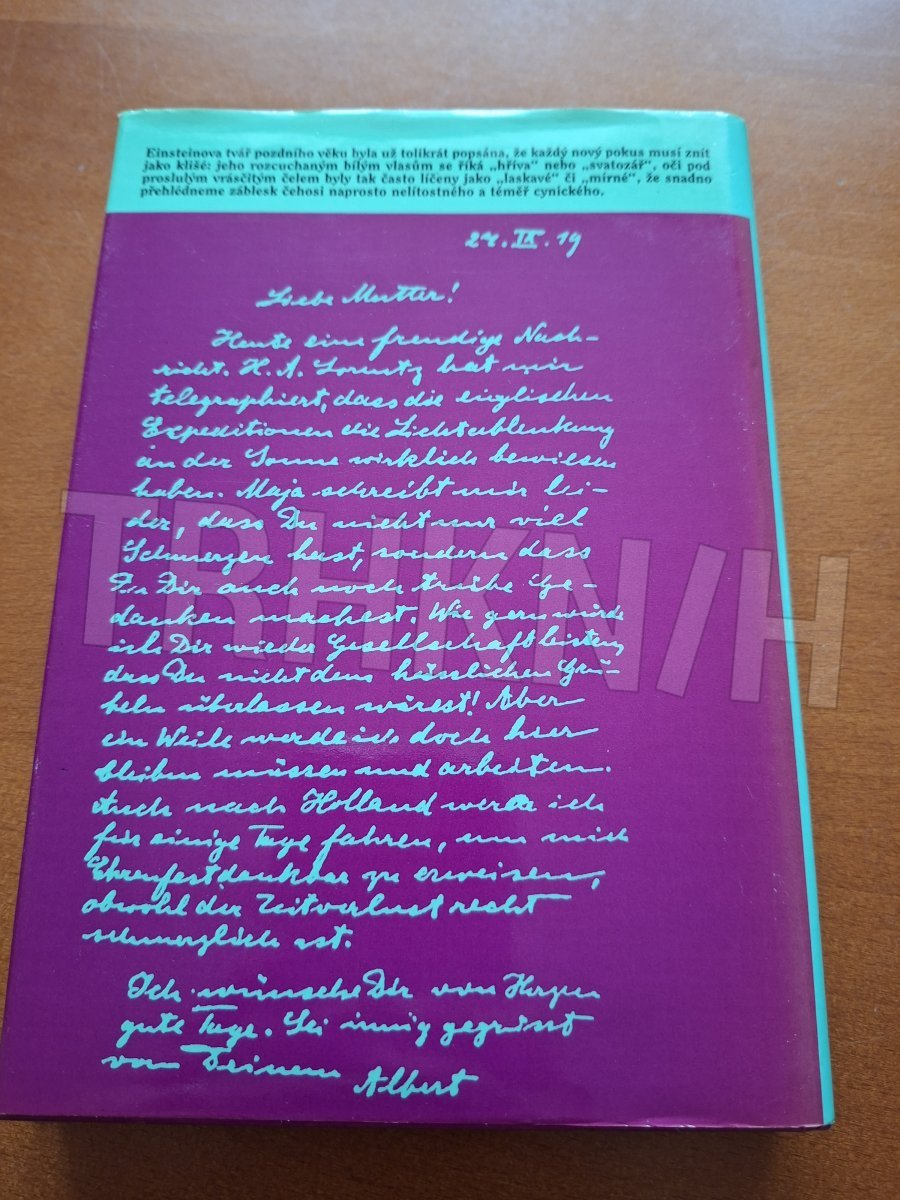 Einsteinova tvář pozdního věku byla už tolikrát popsána, že každý nový pokus musí znít
jako klišé: jeho rozcuchaným bílým vlasům se říká „hříva“ nebo „svatozář“, oči pod
proslulým vrásčitým čelem byly tak často líčeny jako „laskavé“ či „mírné“, že snadno
přehlédneme záblesk čehosi naprosto nelítostného a téměř cynického.
27.IX.19
Liebe Mutter!
Heute eine freudige Nach-
richt. H. A. Lorentz hat mir
telegraphiert, dass die englischen
Expeditionen die Lichtablenkung
an der Sonne wirklich bewiesen
haben. Maja schreibt mir lei-
der, dass Du nicht nur viel
Schmerzen hast, sondern dass
Du Dir auch noch trübe Ge-
danken machest. Wie gern würde
ich Dir wieder Gesellschaft leisten,
dass Du nicht dem hässlichen Grü-
beln überlassen wärest! Aber
ein Weile werde ich doch hier
bleiben müssen und arbeiten.
Auch nach Holland werde ich
für einige Tage fahren, um mich
Ehrenfest dankbar zu erweisen,
obwohl der Zeitverlust recht
schmerzlich ist.
Ich wünsche Dir von Herzen
gute Tage. Sei innig gegrüsst
von Deinem
Albert
TRHKN/H